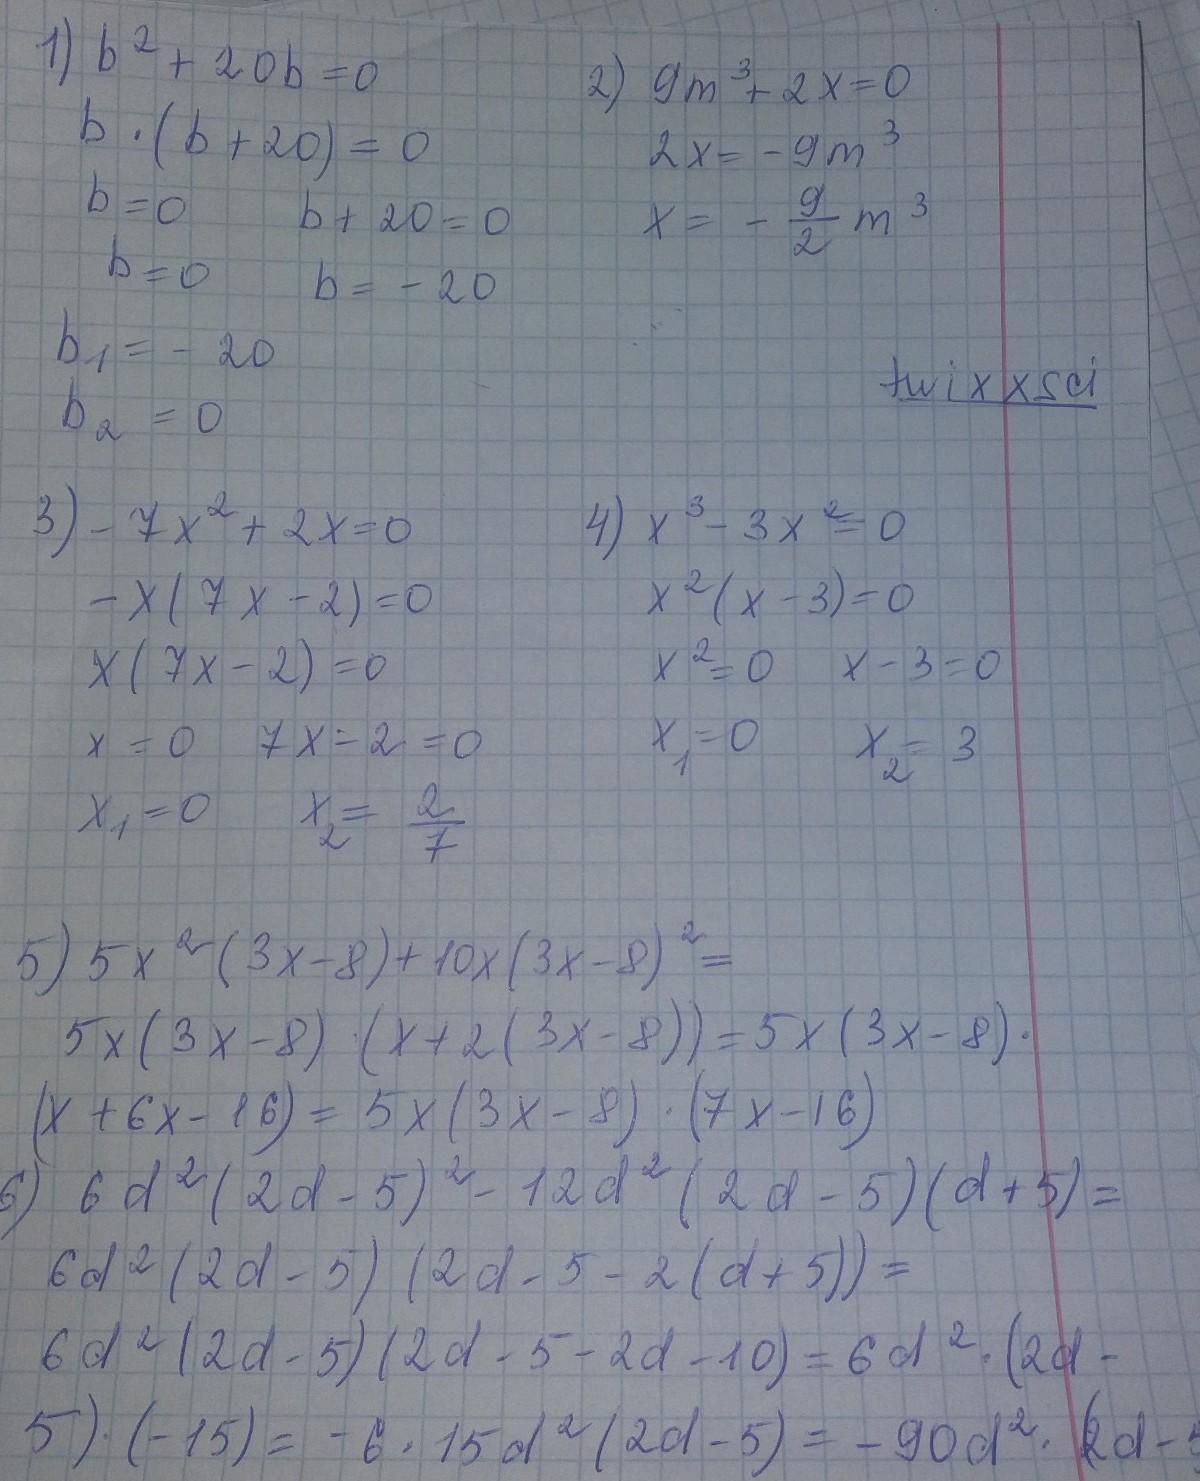 1) b² + 20b = 0
b · (b + 20) = 0
b = 0    b + 20 = 0
b = 0    b = - 20
b₁ = - 20
b₂ = 0
2) 9m³ + 2x = 0
2x = - 9m³
x = - 9/2 m³
twixxsci
3) - 7x² + 2x = 0
- x(7x - 2) = 0
x(7x - 2) = 0
x = 0    7x - 2 = 0
x₁ = 0    x₂ = 2/7
4) x³ - 3x² = 0
x²(x - 3) = 0
x² = 0    x - 3 = 0
x₁ = 0    x₂ = 3
5) 5x²(3x - 8) + 10x(3x - 8)² =
5x(3x - 8) · (x + 2(3x - 8)) = 5x(3x - 8) ·
(x + 6x - 16) = 5x(3x - 8) · (7x - 16)
6) 6d²(2d - 5)² - 12d²(2d - 5)(d + 5) =
6d²(2d - 5)(2d - 5 - 2(d + 5)) =
6d²(2d - 5)(2d - 5 - 2d - 10) = 6d² · (2d -
5) · (-15) = - 6 · 15d²(2d - 5) = - 90d² · (2d - 5